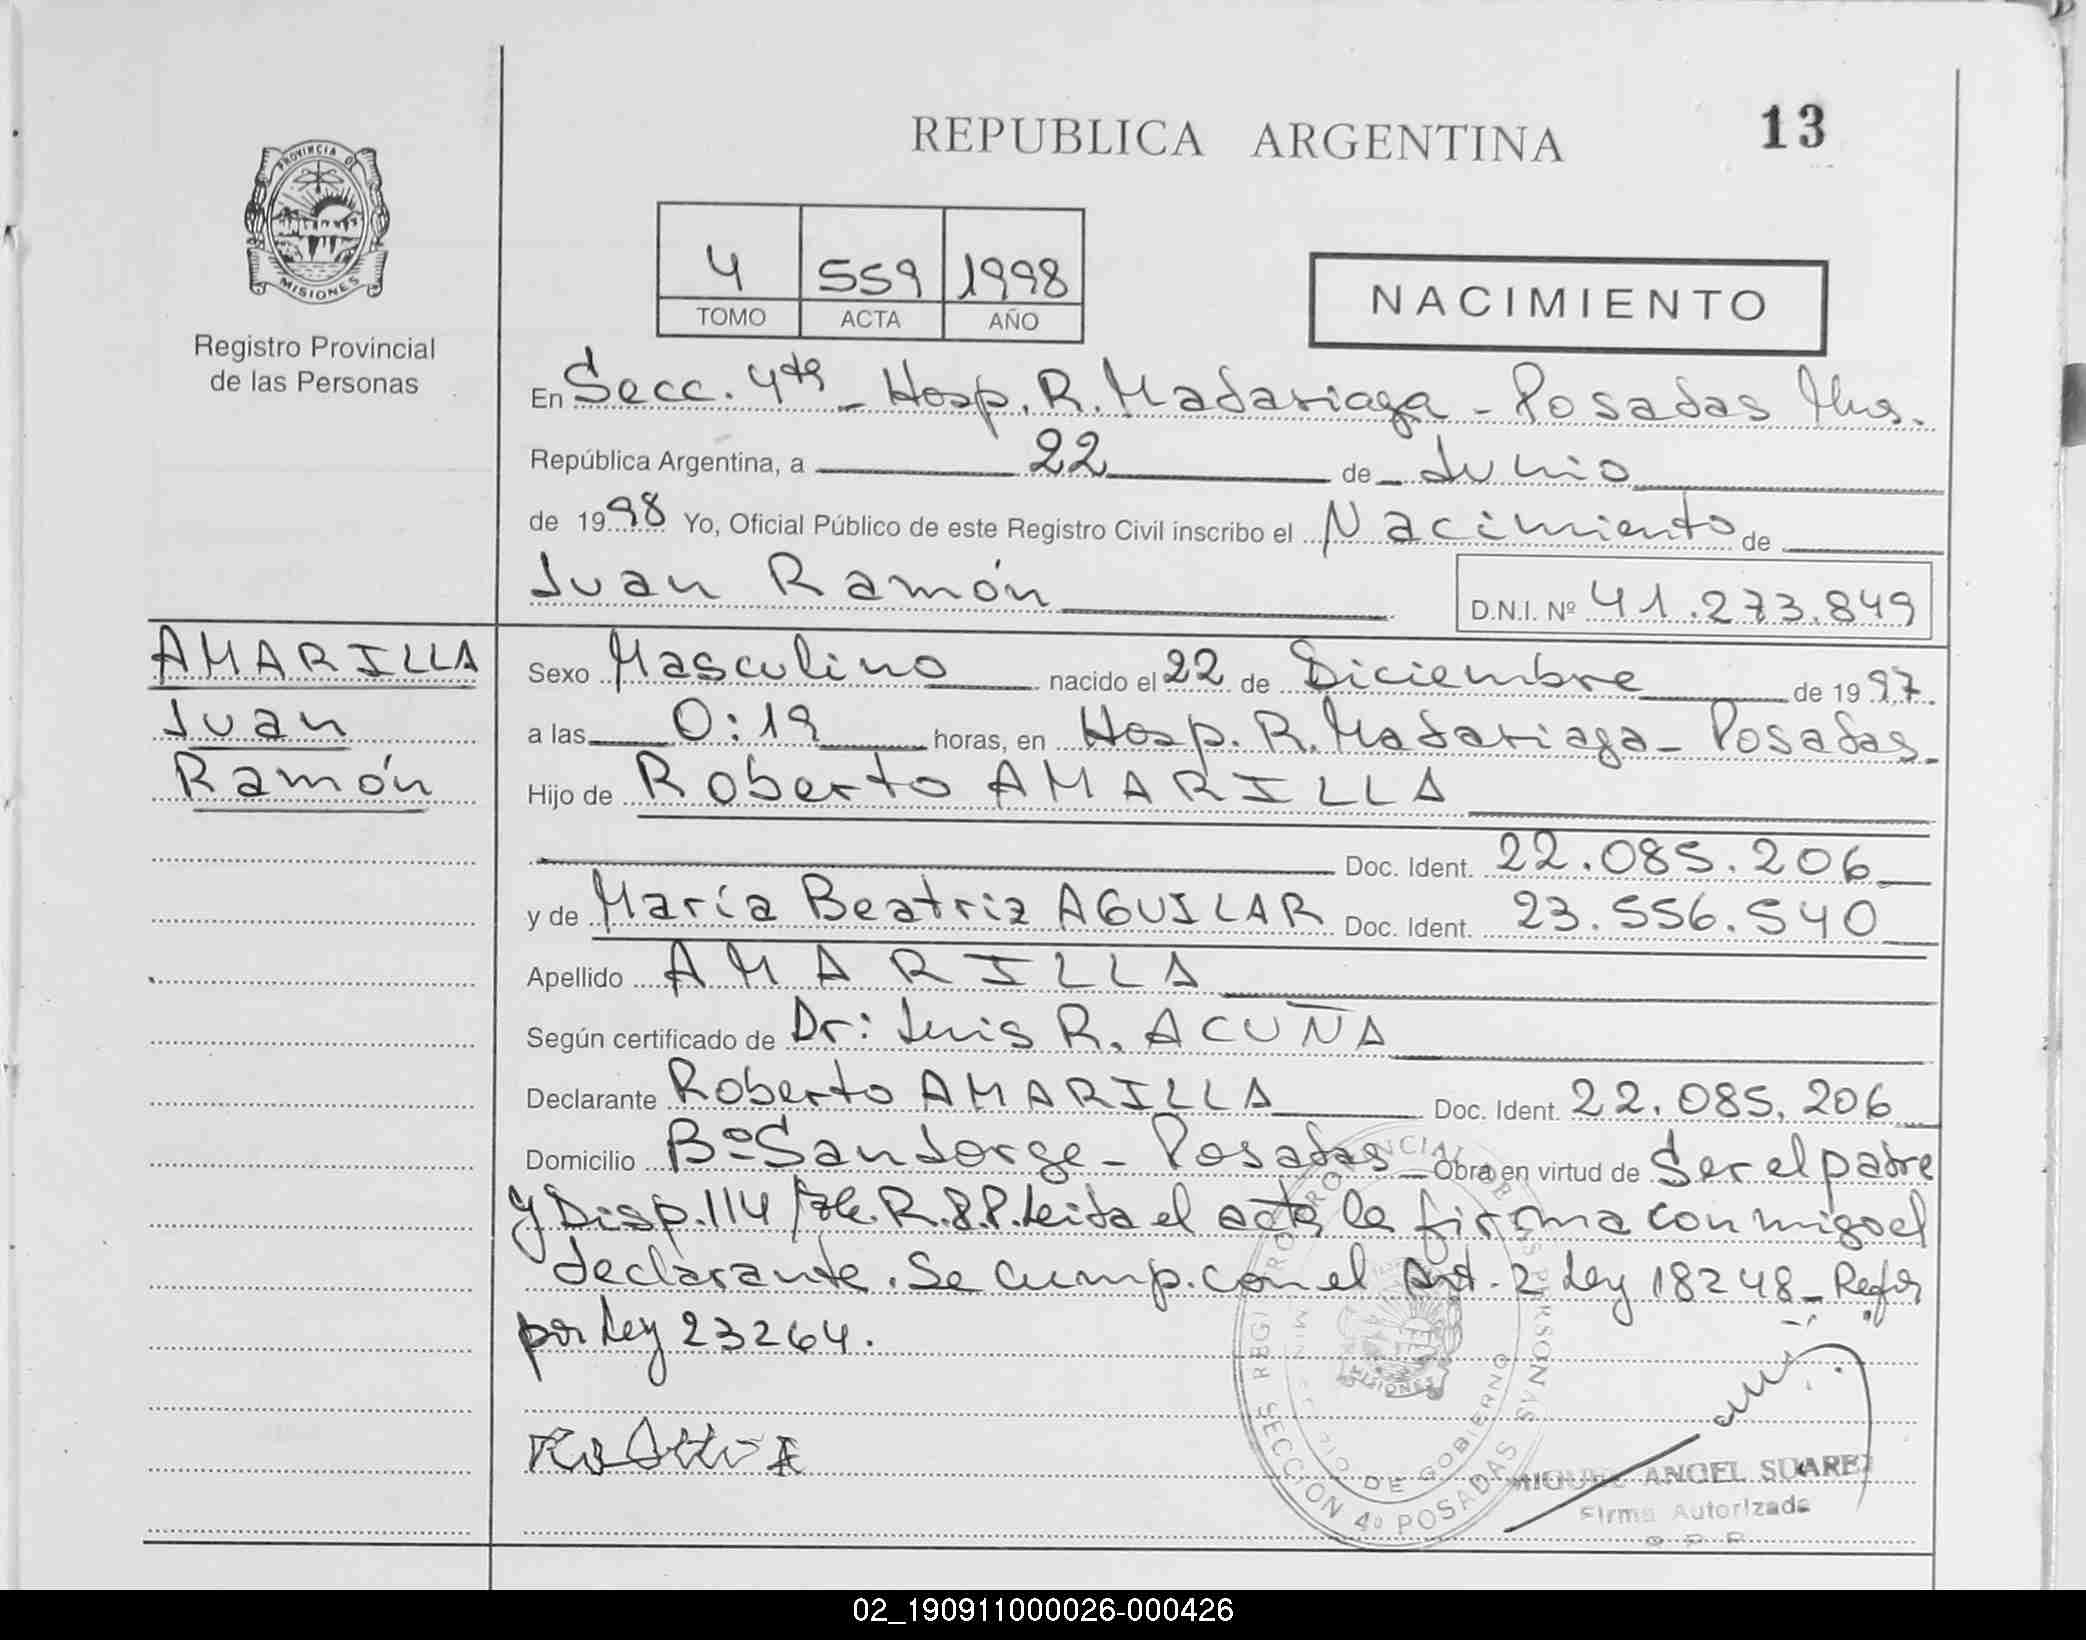 REPUBLICA ARGENTINA
13
PROVINCIA DE
MISIONES
Registro Provincial
de las Personas
4 559 1998
TOMO ACTA AÑO
NACIMIENTO
En Secc. 4ta - Hosp. R. Madariaga - Posadas Mnes.
República Argentina, a 22 de Junio
de 1998 Yo, Oficial Público de este Registro Civil inscribo el Nacimiento de
Juan Ramón
D.N.I. Nº 41.273.849
AMARILLA
Juan
Ramón
Sexo Masculino nacido el 22 de Diciembre de 1997
a las 0:19 horas, en Hosp. R. Madariaga - Posadas -
Hijo de Roberto AMARILLA
Doc. Ident. 22.085.206
y de María Beatriz AGUILAR Doc. Ident. 23.556.540
Apellido AMARILLA
Según certificado de Dr: Luis R. ACUÑA
Declarante Roberto AMARILLA Doc. Ident. 22.085.206
Domicilio Bº San Jorge - Posadas Obra en virtud de Ser el padre
y Disp. 114 R.P.P. Leida el acta la firma conmigo el
declarante. Se cump. con el Art. 2 Ley 18248 - Refor
por Ley 23264.
REGISTRO PROVINCIAL DE LAS PERSONAS
DE GOBIERNO
MISIONES
SECCION 4º POSADAS
MIGUEL ANGEL SUAREZ
Firma Autorizada